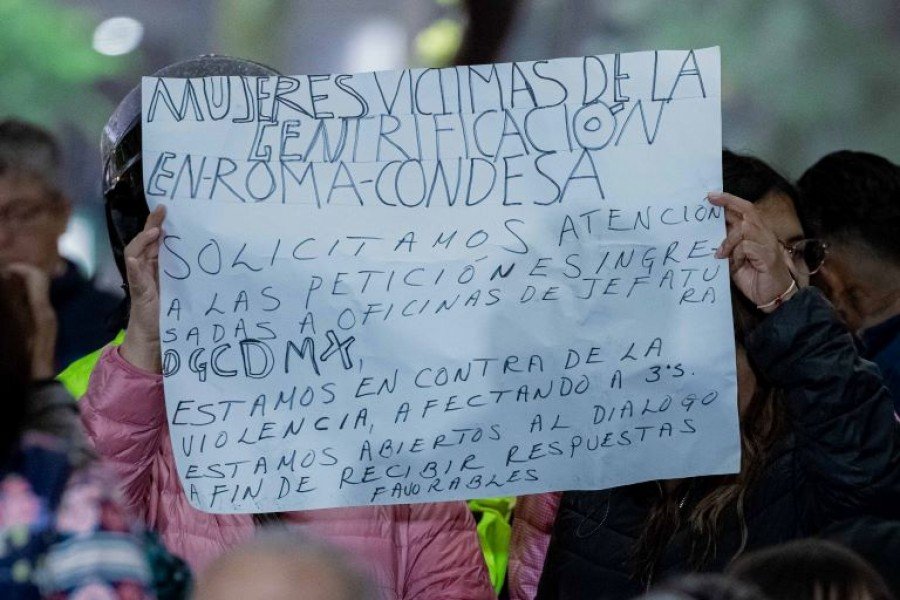 MUJERES VICTIMAS DE LA
GENTRIFICACIÓN
EN-ROMA-CONDESA
SOLICITAMOS ATENCIÓN
A LAS PETICIÓNES INGRE-
SADAS A OFICINAS DE JEFATU
RA
DGCDMX,
ESTAMOS EN CONTRA DE LA
VIOLENCIA, AFECTANDO A 3ºS.
ESTAMOS ABIERTOS AL DIALOGO
A FIN DE RECIBIR RESPUESTAS
FAVORABLES